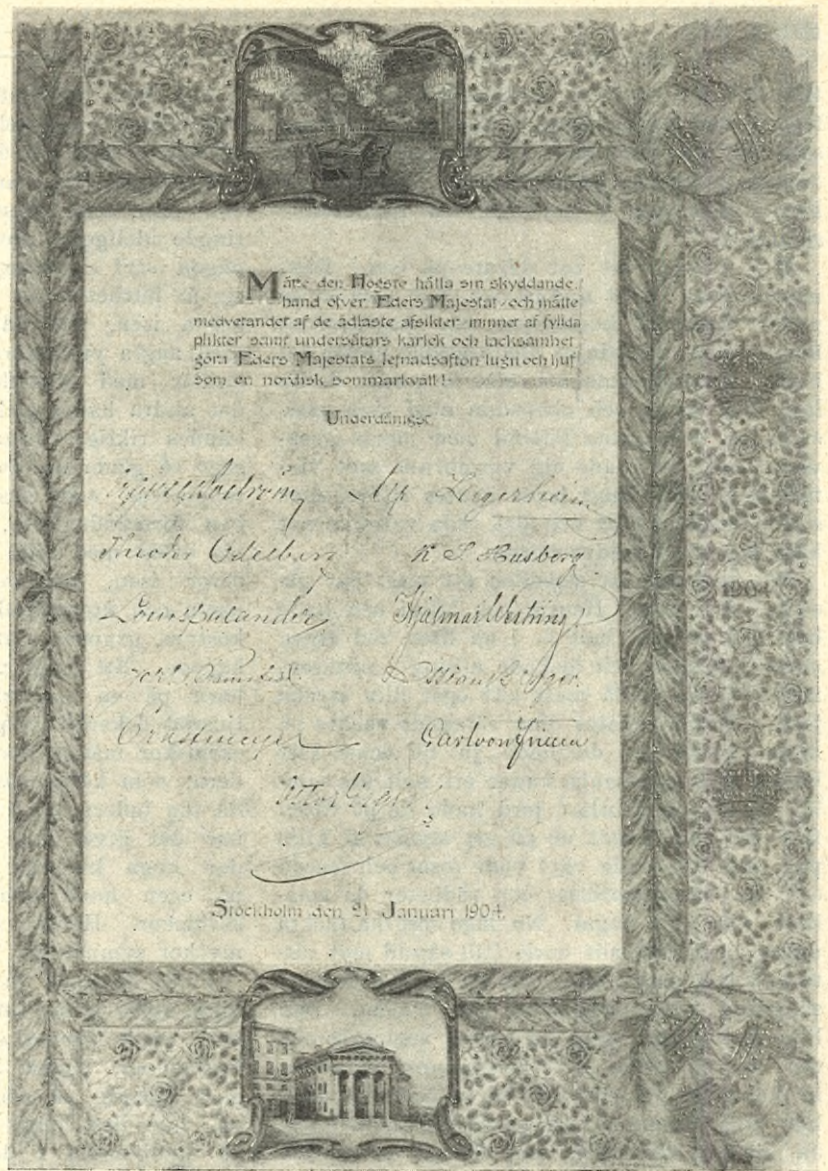 Måtte den Högste hålla sin skyddande
hand öfver Eders Majestät och måtte
medvetandet af de ädlaste afsikter minnet af fyllda
plikter samt undersåtars kärlek och tacksamhet
göra Eders Majestäts lefnadsafton lugn och ljuf
som en nordisk sommarkväll!
Underdånigst,
Boström Alf. Lagerheim
Theodor Odelberg K. S. Husberg
Louis Palander Hjalmar Westring
Ossian Berger.
E. Meyer Carl von Friesen
Otto
1904
Stockholm den 21 Januari 1904.